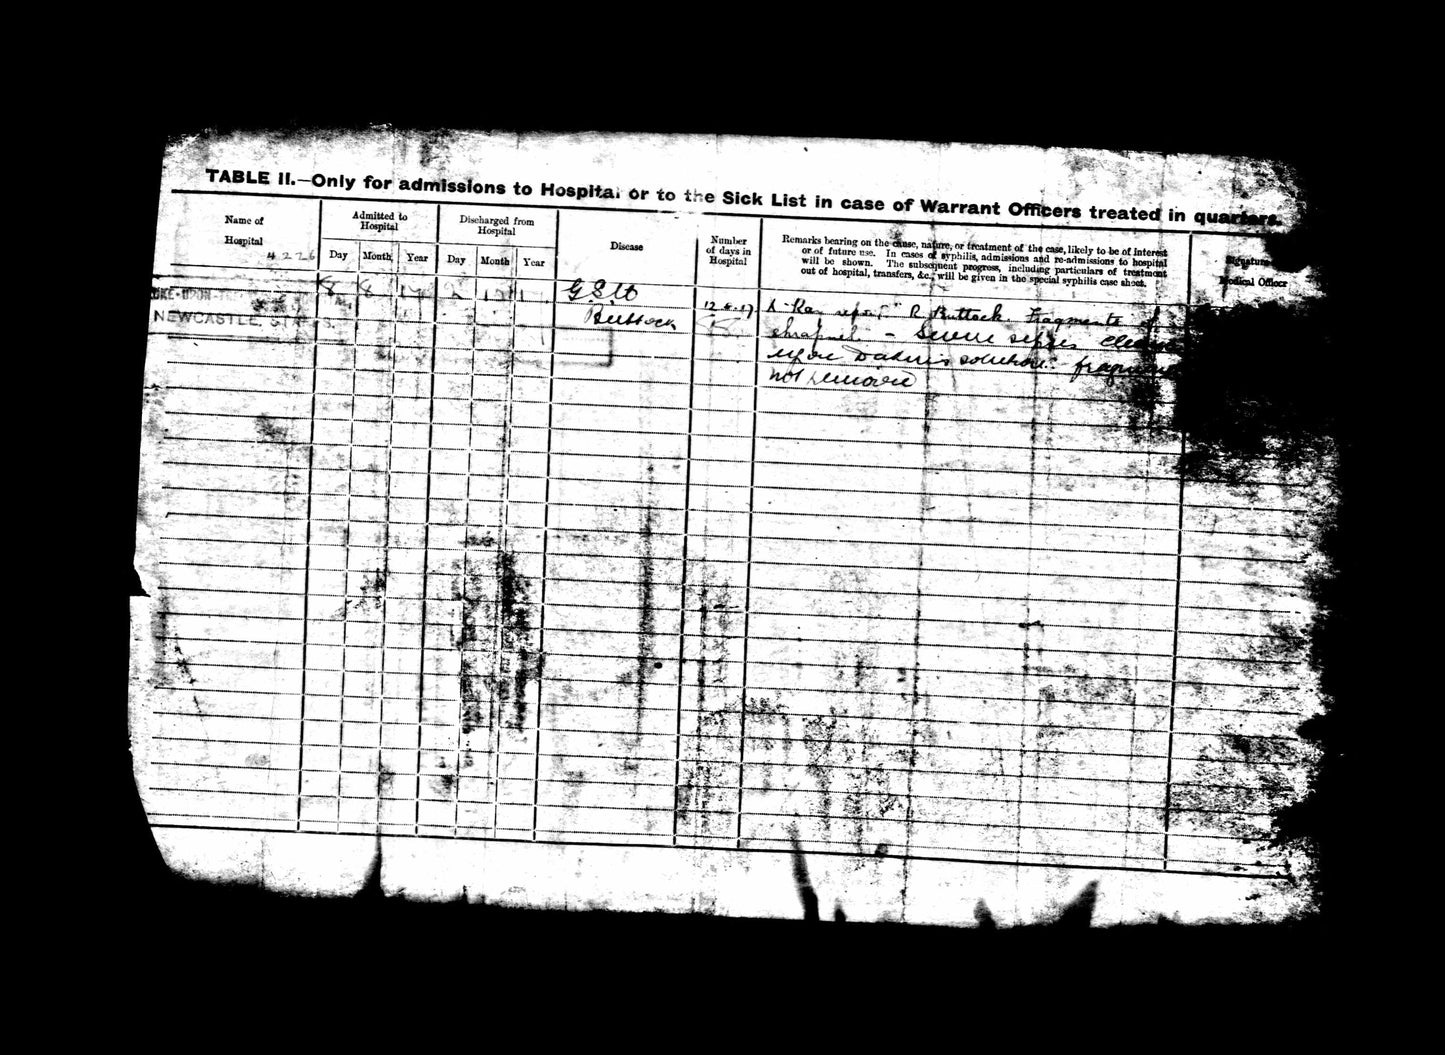 TABLE II.—Only for admissions to Hospital or to the Sick List in case of Warrant Officers treated in quarters.
Name of
Hospital
Admitted to
Hospital
Day Month Year
Discharged from
Hospital
Day Month Year
Disease
Number
of days in
Hospital
Remarks bearing on the cause, nature, or treatment of the case, likely to be of interest
or of future use. In cases of syphilis, admissions and re-admissions to hospital
will be shown. The subsequent progress, including particulars of treatment
out of hospital, transfers, &c., will be given in the special syphilis case sheet.
Signature
Medical Officer
NEWCASTLE, STAFFS.
8 8 17
G.S.W.
Buttock
X Ray report R Buttock. Fragments of
shrapnel – Severe sepsis
solution fragments
not removed